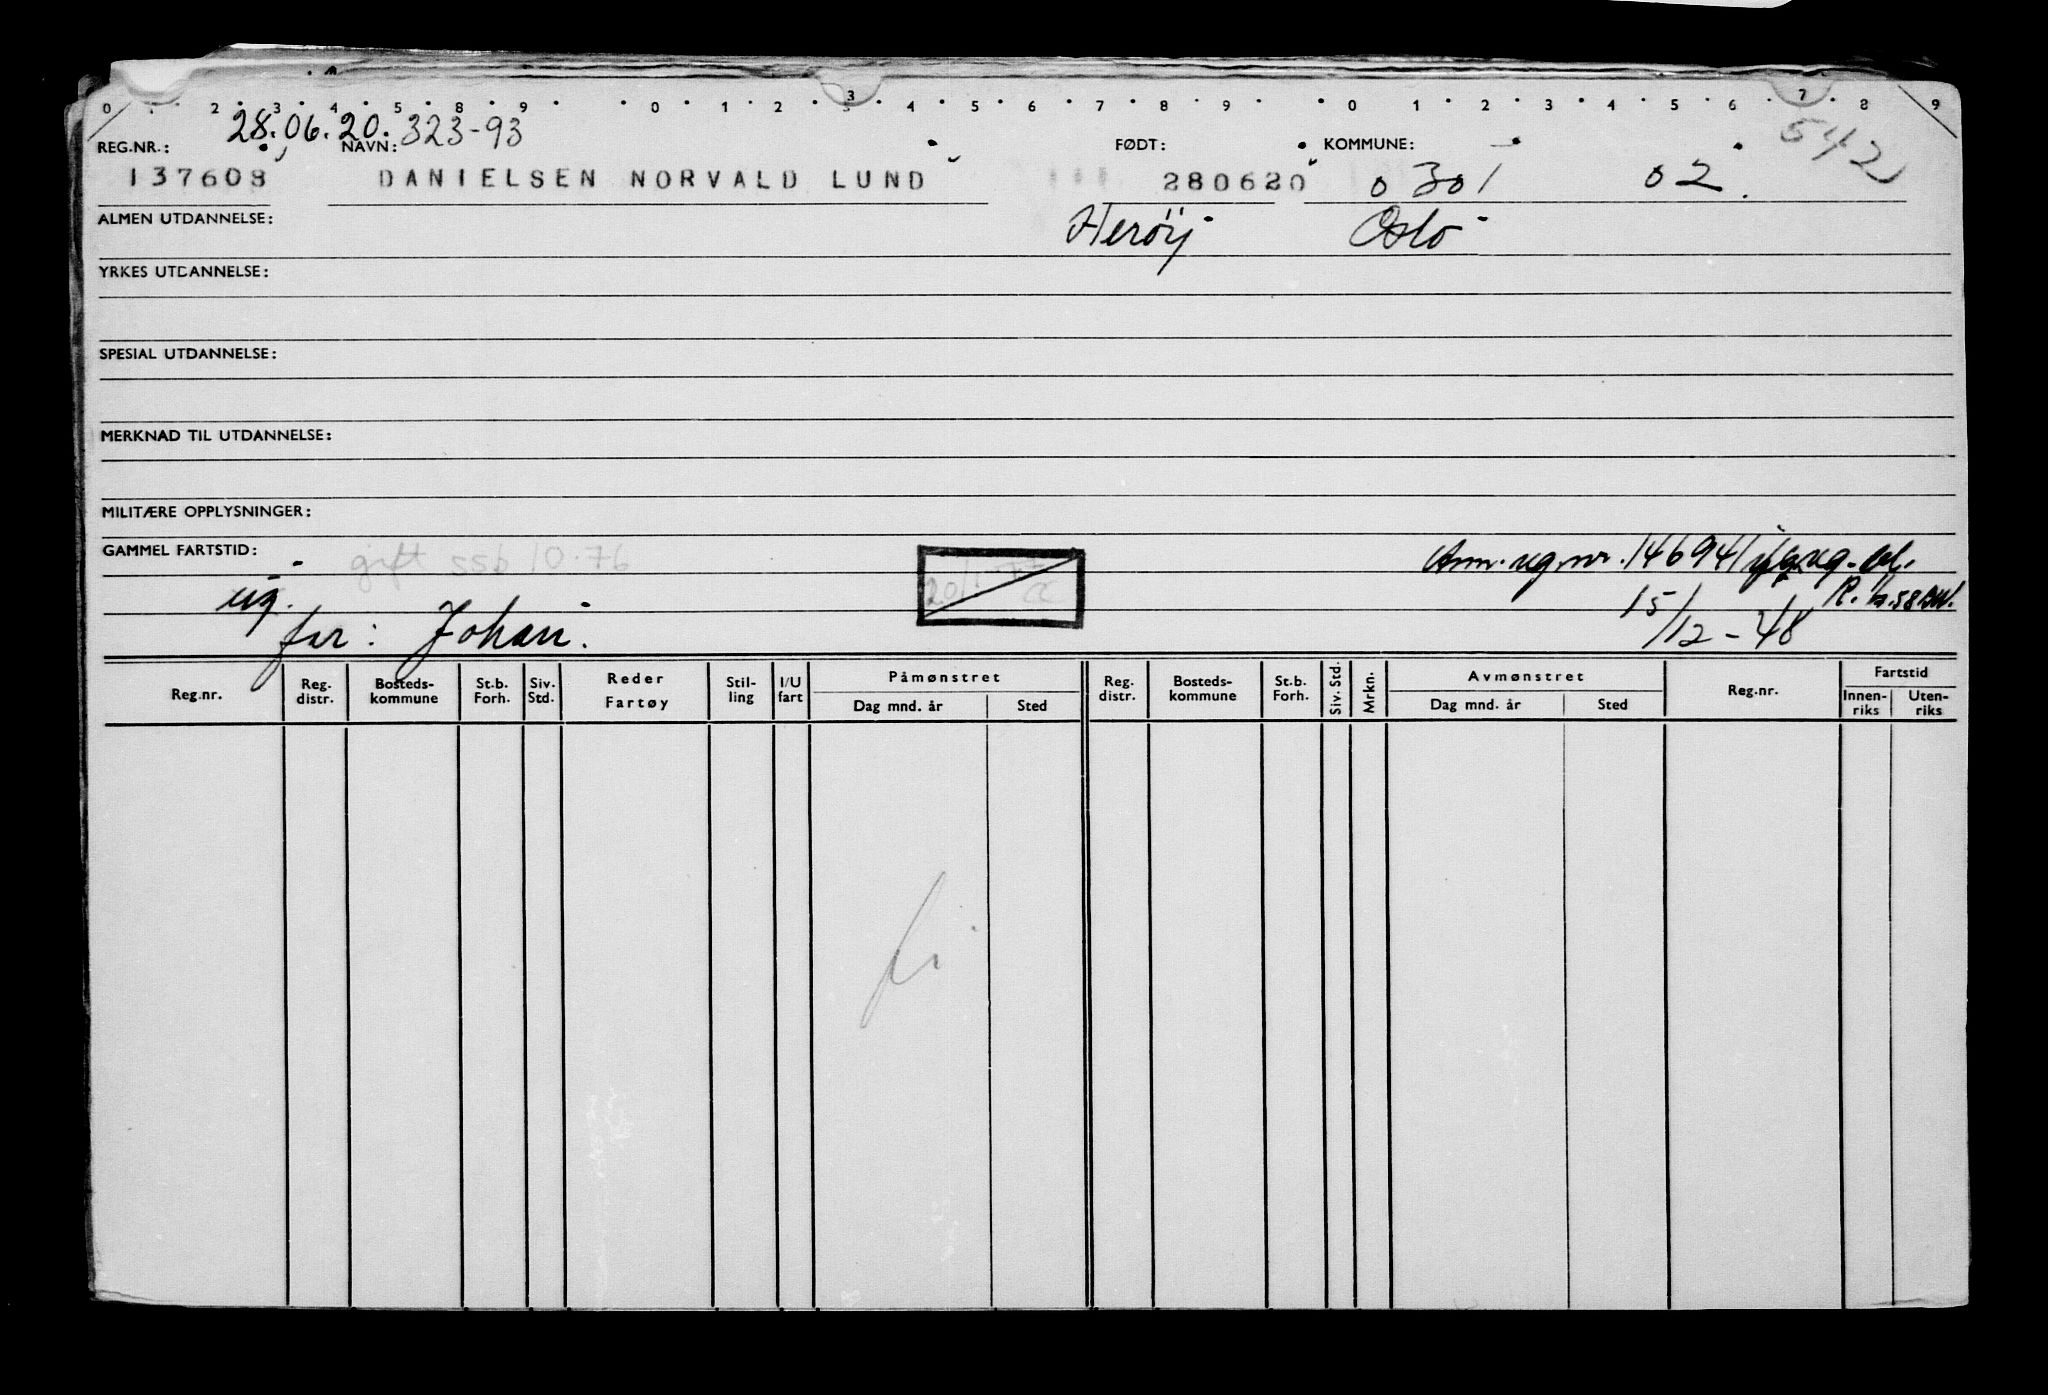 0 . 2 . 3 . 4 . 5 . 8 . 9 . . 0 . 1 . 2 . 3 . 4 . 5 . 6 . 7 . 8 . 9 . . 0 . 1 . 2 . 3 . 4 . 5 . 6 . 7 . 8 . 9
28.06.20. 323-93
542
REG.NR.: NAVN: FØDT: KOMMUNE:
137608 DANIELSEN NORVALD LUND 280620 0301 02.
ALMEN UTDANNELSE: Herøy Oslo
YRKES UTDANNELSE:
SPESIAL UTDANNELSE:
MERKNAD TIL UTDANNELSE:
MILITÆRE OPPLYSNINGER:
GAMMEL FARTSTID: gift ssb 10.76
Ann. reg.nr. 146941
ug.
15/12-48
far: Johan.
Reg.nr. Reg. distr. Bosteds- kommune St.b. Forh. Siv. Std. Reder Fartøy Stil- ling I/U fart Påmønstret Dag mnd. år Sted Reg. distr. Bosteds- kommune St.b. Forh. Siv. Std. Mrkn. Avmønstret Dag mnd. år Sted Reg.nr. Fartstid Innen- riks Uten- riks